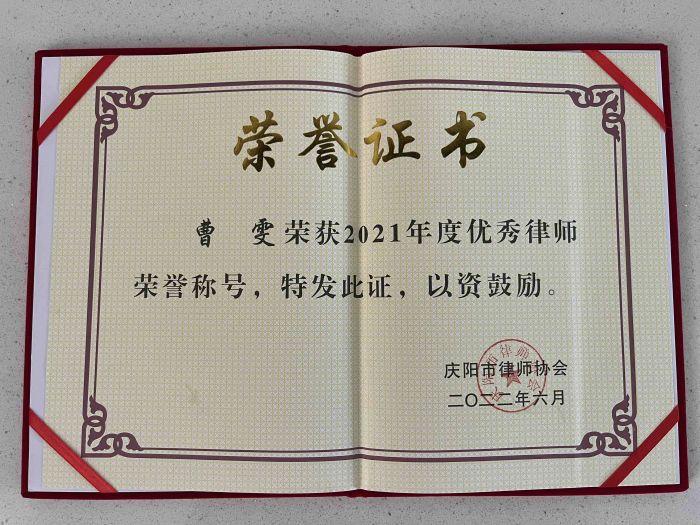 荣誉证书
曹 雯荣获2021年度优秀律师
荣誉称号，特发此证，以资鼓励。
庆阳市律师协会
二〇二二年六月
庆阳市律师协会